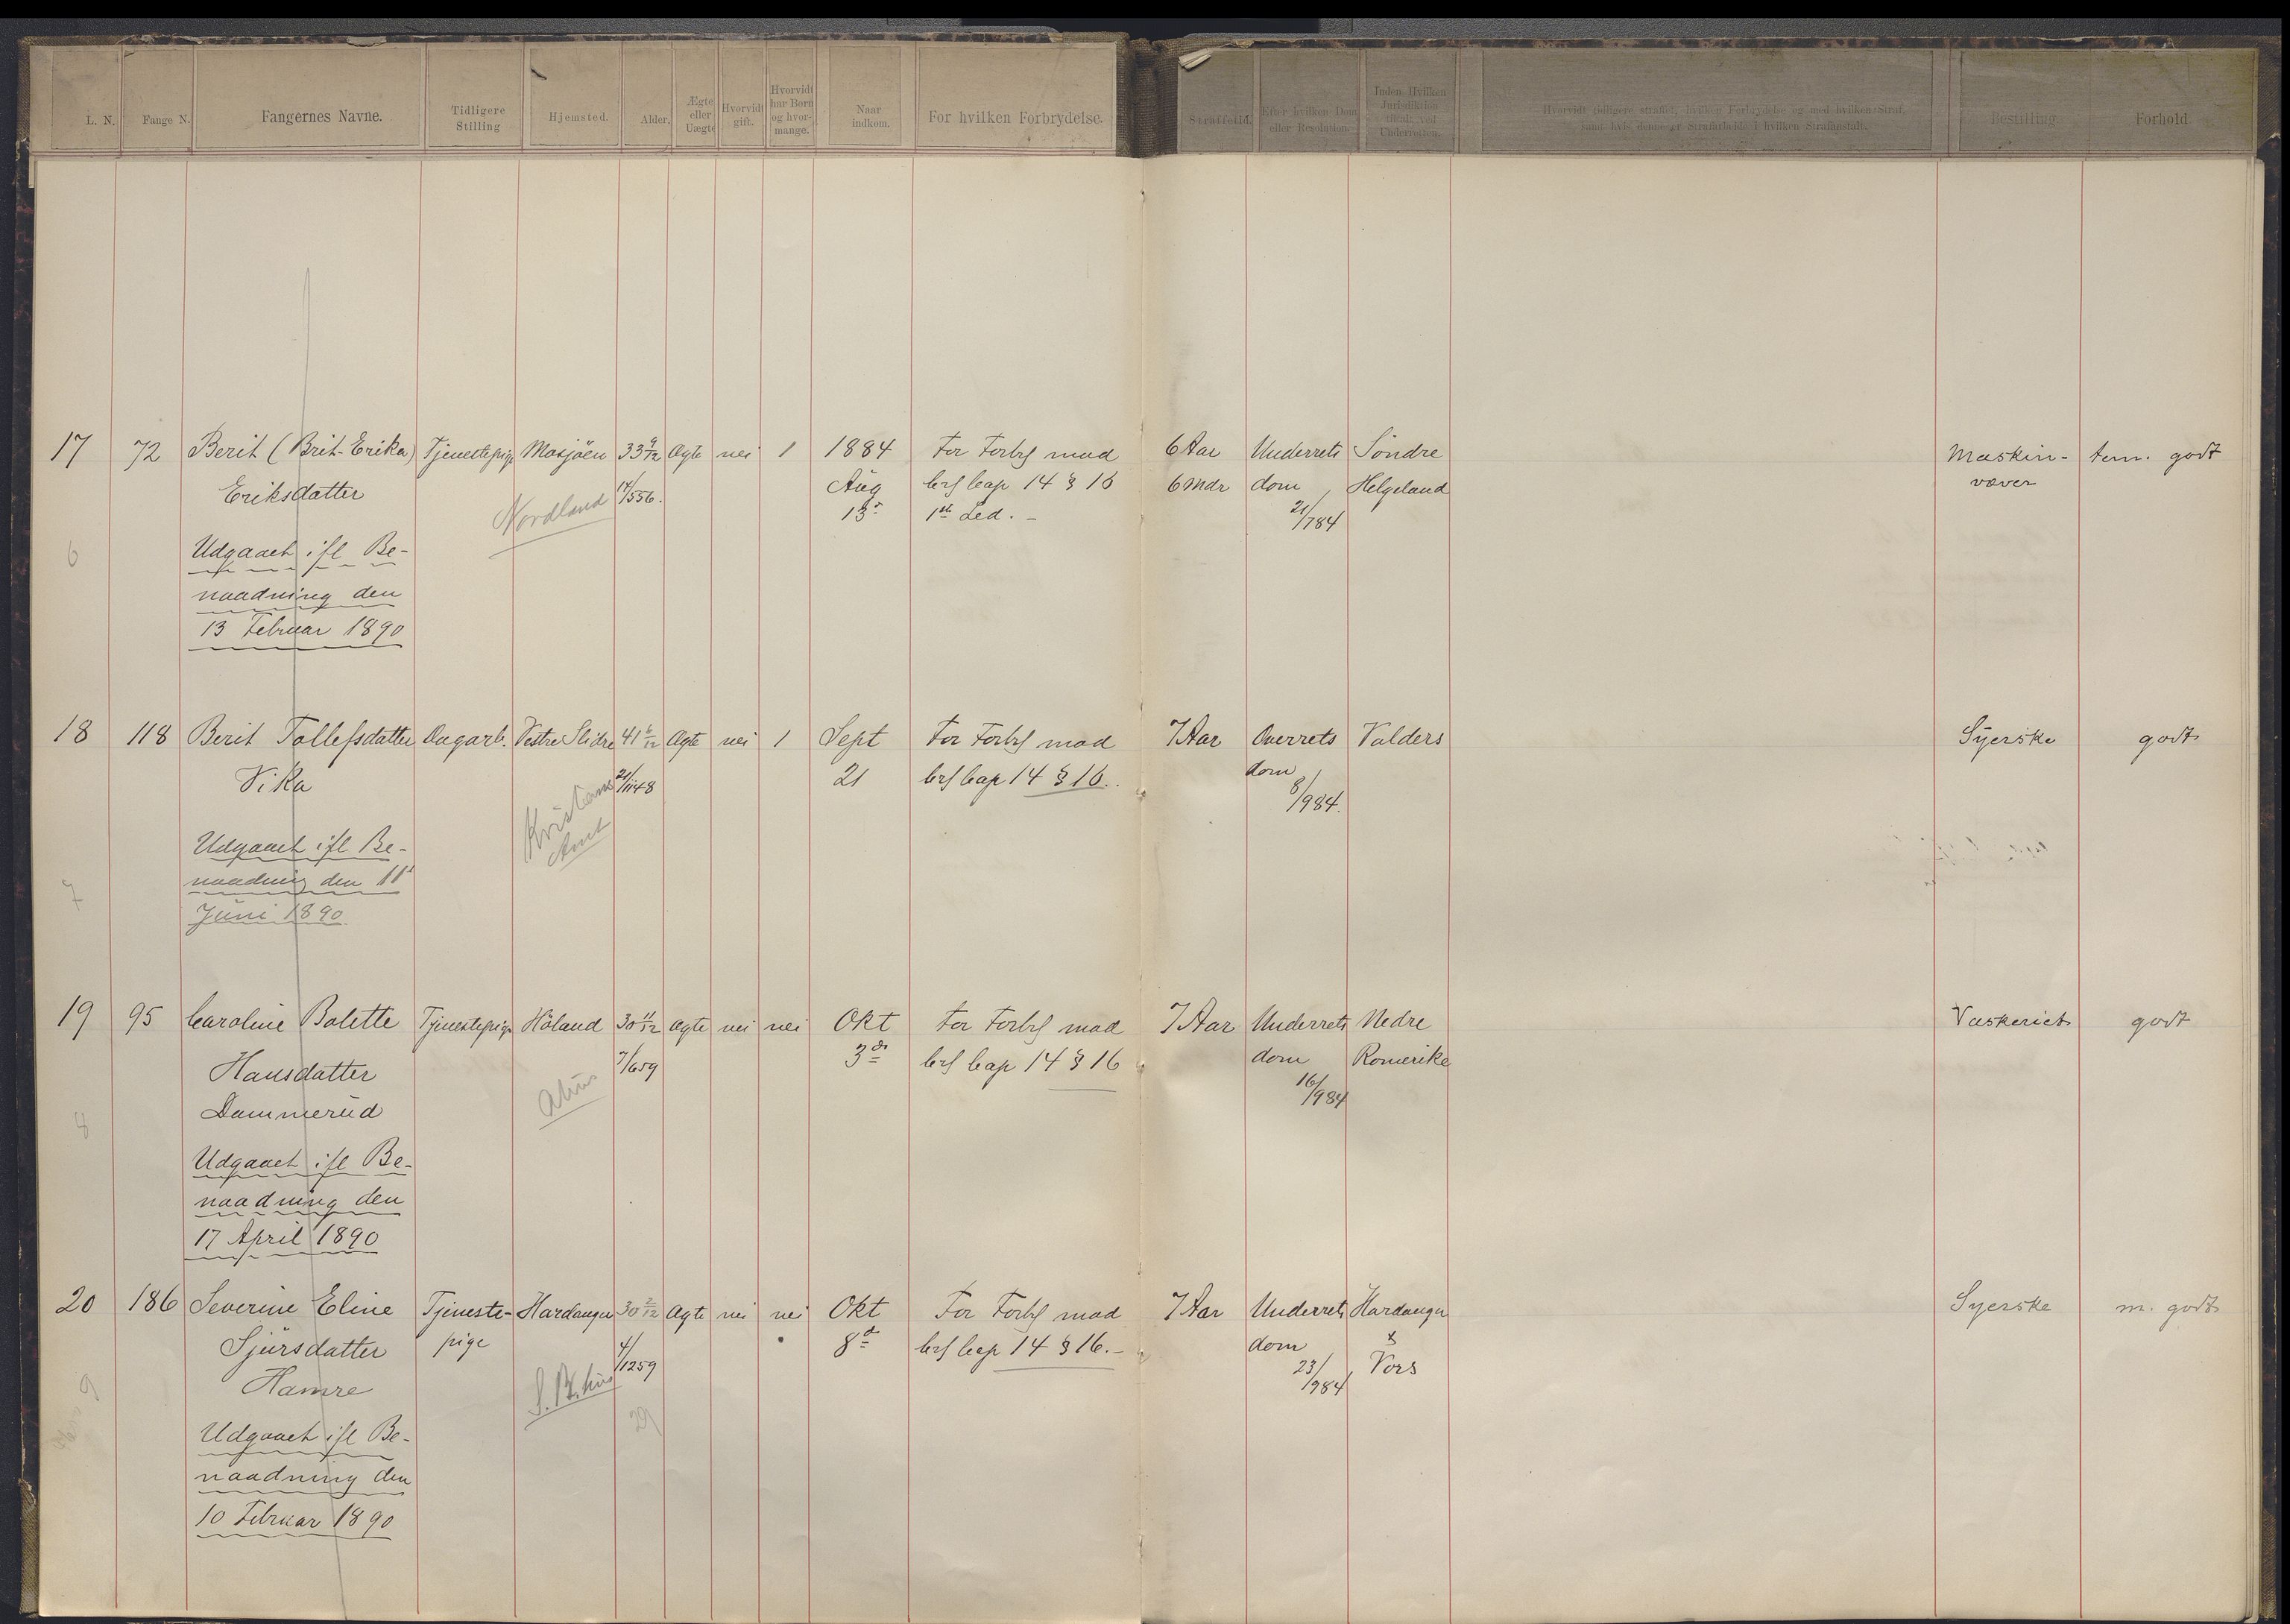 L. N. Fange N. Fangernes Navne. Tidligere Stilling Hjemsted. Alder. Ægte eller Uægte Hvorvidt gift. Hvorvidt har Børn og hvor-mange. Naar indkom. For hvilken Forbrydelse. Straffetid. Efter hvilken Dom eller Resolution. Inden Hvilken Jurisdiktion tiltalt ved Underretten. Hvorvidt tidligere straffet, hvilken Forbrydelse og med hvilken Straf, samt hvis denne er Strafarbeide i hvilken Strafanstalt. Bestilling Forhold
17 72 Berit (Brit-Erika) Tjenestepige Mosjöen 33 9/12 Ægte nei 1 1884 For Forbr mod 6 Aar Underrets Söndre Maskin- tem. godt
Eriksdatter Nordland 17/5 56. Aug Crl Cap 14 § 16 6 Mdr dom Helgeland væver
13 1ste Led. - 21/7 84
Udgaaet ifl Be-
6
naadning den
13 Februar 1890
18 118 Berit Tollefsdatter Dagarb. Vestre Slidre 41 6/12 Ægte nei 1 Sept For Forbr mod 7 Aar Overrets Valders Syerske godt
Vika Kristians Amt 21/11 48 21 Crl Cap 14 § 16. dom
8/9 84.
Udgaaet ifl Be-
naadning den 11
7
Juni 1890
19 95 Caroline Bolette Tjenestepige Höland 30 11/12 Ægte nei nei Okt For Forbr mod 7 Aar Underrets Nedre Vaskeriet godt
Hansdatter Ahus 7/6 59 3 Crl Cap 14 § 16 dom Romerike
Dammerud 16/9 84
8
Udgaaet ifl Be-
naadning den
17 April 1890
20 186 Severine Eline Tjeneste- Hardanger 30 2/12 Ægte nei nei Okt For Forbr mod 7 Aar Underrets Hardanger Syerske m. godt
Sjursdatter pige 4/12 59 8 Crl Cap 14 § 16. - dom &
Hamre S. B.hus 23/9 84 Vors
9
29
Udgaaet ifl Be-
naadning den
10 Februar 1890